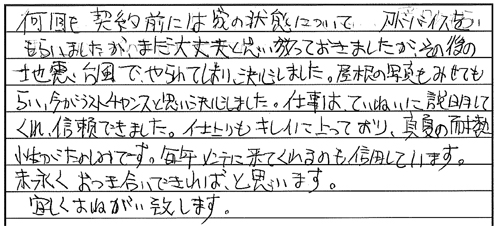 何回も契約前には家の状態について、アドバイスを
もらいましたが、まだ大丈夫と思い放っておきましたが、その後の
地震、台風で、やられてしまい、決心しました。屋根の写真もみせても
らい、今がラストチャンスと思い決心しました。仕事は、ていねいに説明して
くれ、信頼できました。仕上りもキレイに上っており、真夏の耐熱
性がたのしみです。毎年レンラに来てくれるのも信用しています。
末永くおつき合いできれば、と思います。
宜しくおねがい致します。